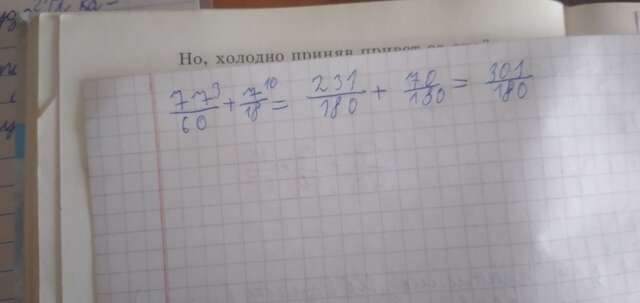 Но, холодно приняв привет
77³/60 + 7¹⁰/18 = 231/180 + 70/180 = 301/180